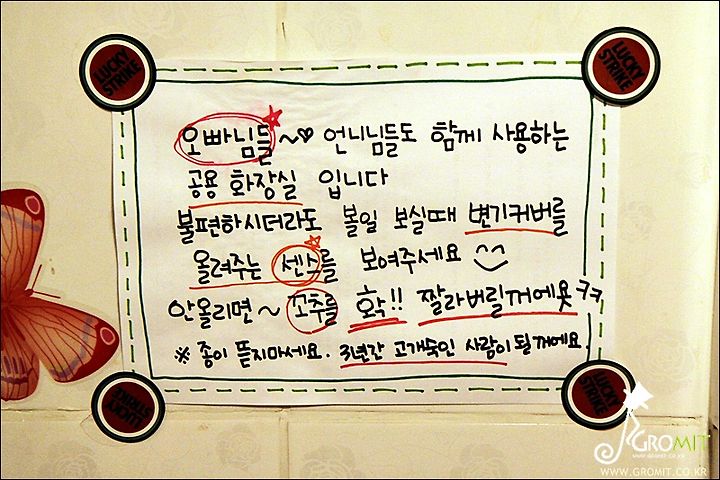 LUCKY STRIKE
LUCKY STRIKE
오빠님들~♥ 언니님들도 함께 사용하는
공용 화장실 입니다
불편하시더라도 볼일 보실때 변기커버를
올려주는 센스를 보여주세요 ^^
안올리면~ 꼬추를 확!! 짤라버릴꺼에욧ㅋㅋ
※ 종이 뜯지마세요. 3년간 고개숙인 사람이 될꺼에요.
LUCKY STRIKE
LUCKY STRIKE
GROMIT
WWW.GROMIT.CO.KR
WWW.GROMIT.CO.KR